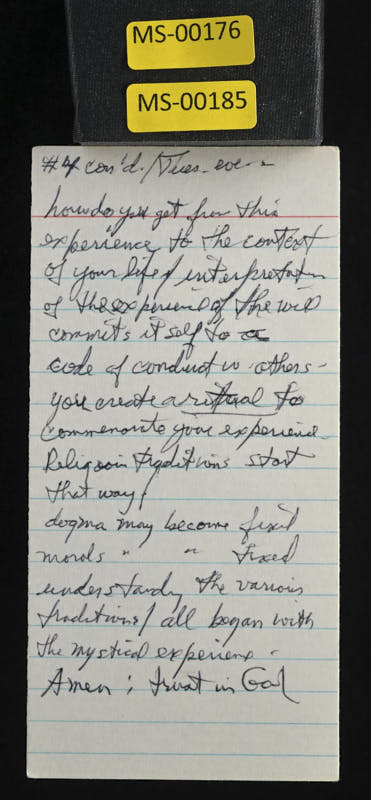 MS-00176
MS-00185
#4 con'd. / Tues. eve -
how do you get from this
experience to the context
of your life / interpretation
of the experience / the will
commits itself to a
code of conduct w. others -
you create a ritual to
commemorate your experience.
Religion traditions start
that way /
dogma may become fixed
morals " " fixed
understandg the various
traditions / all began with
the mystical experience -
Amen : trust in God